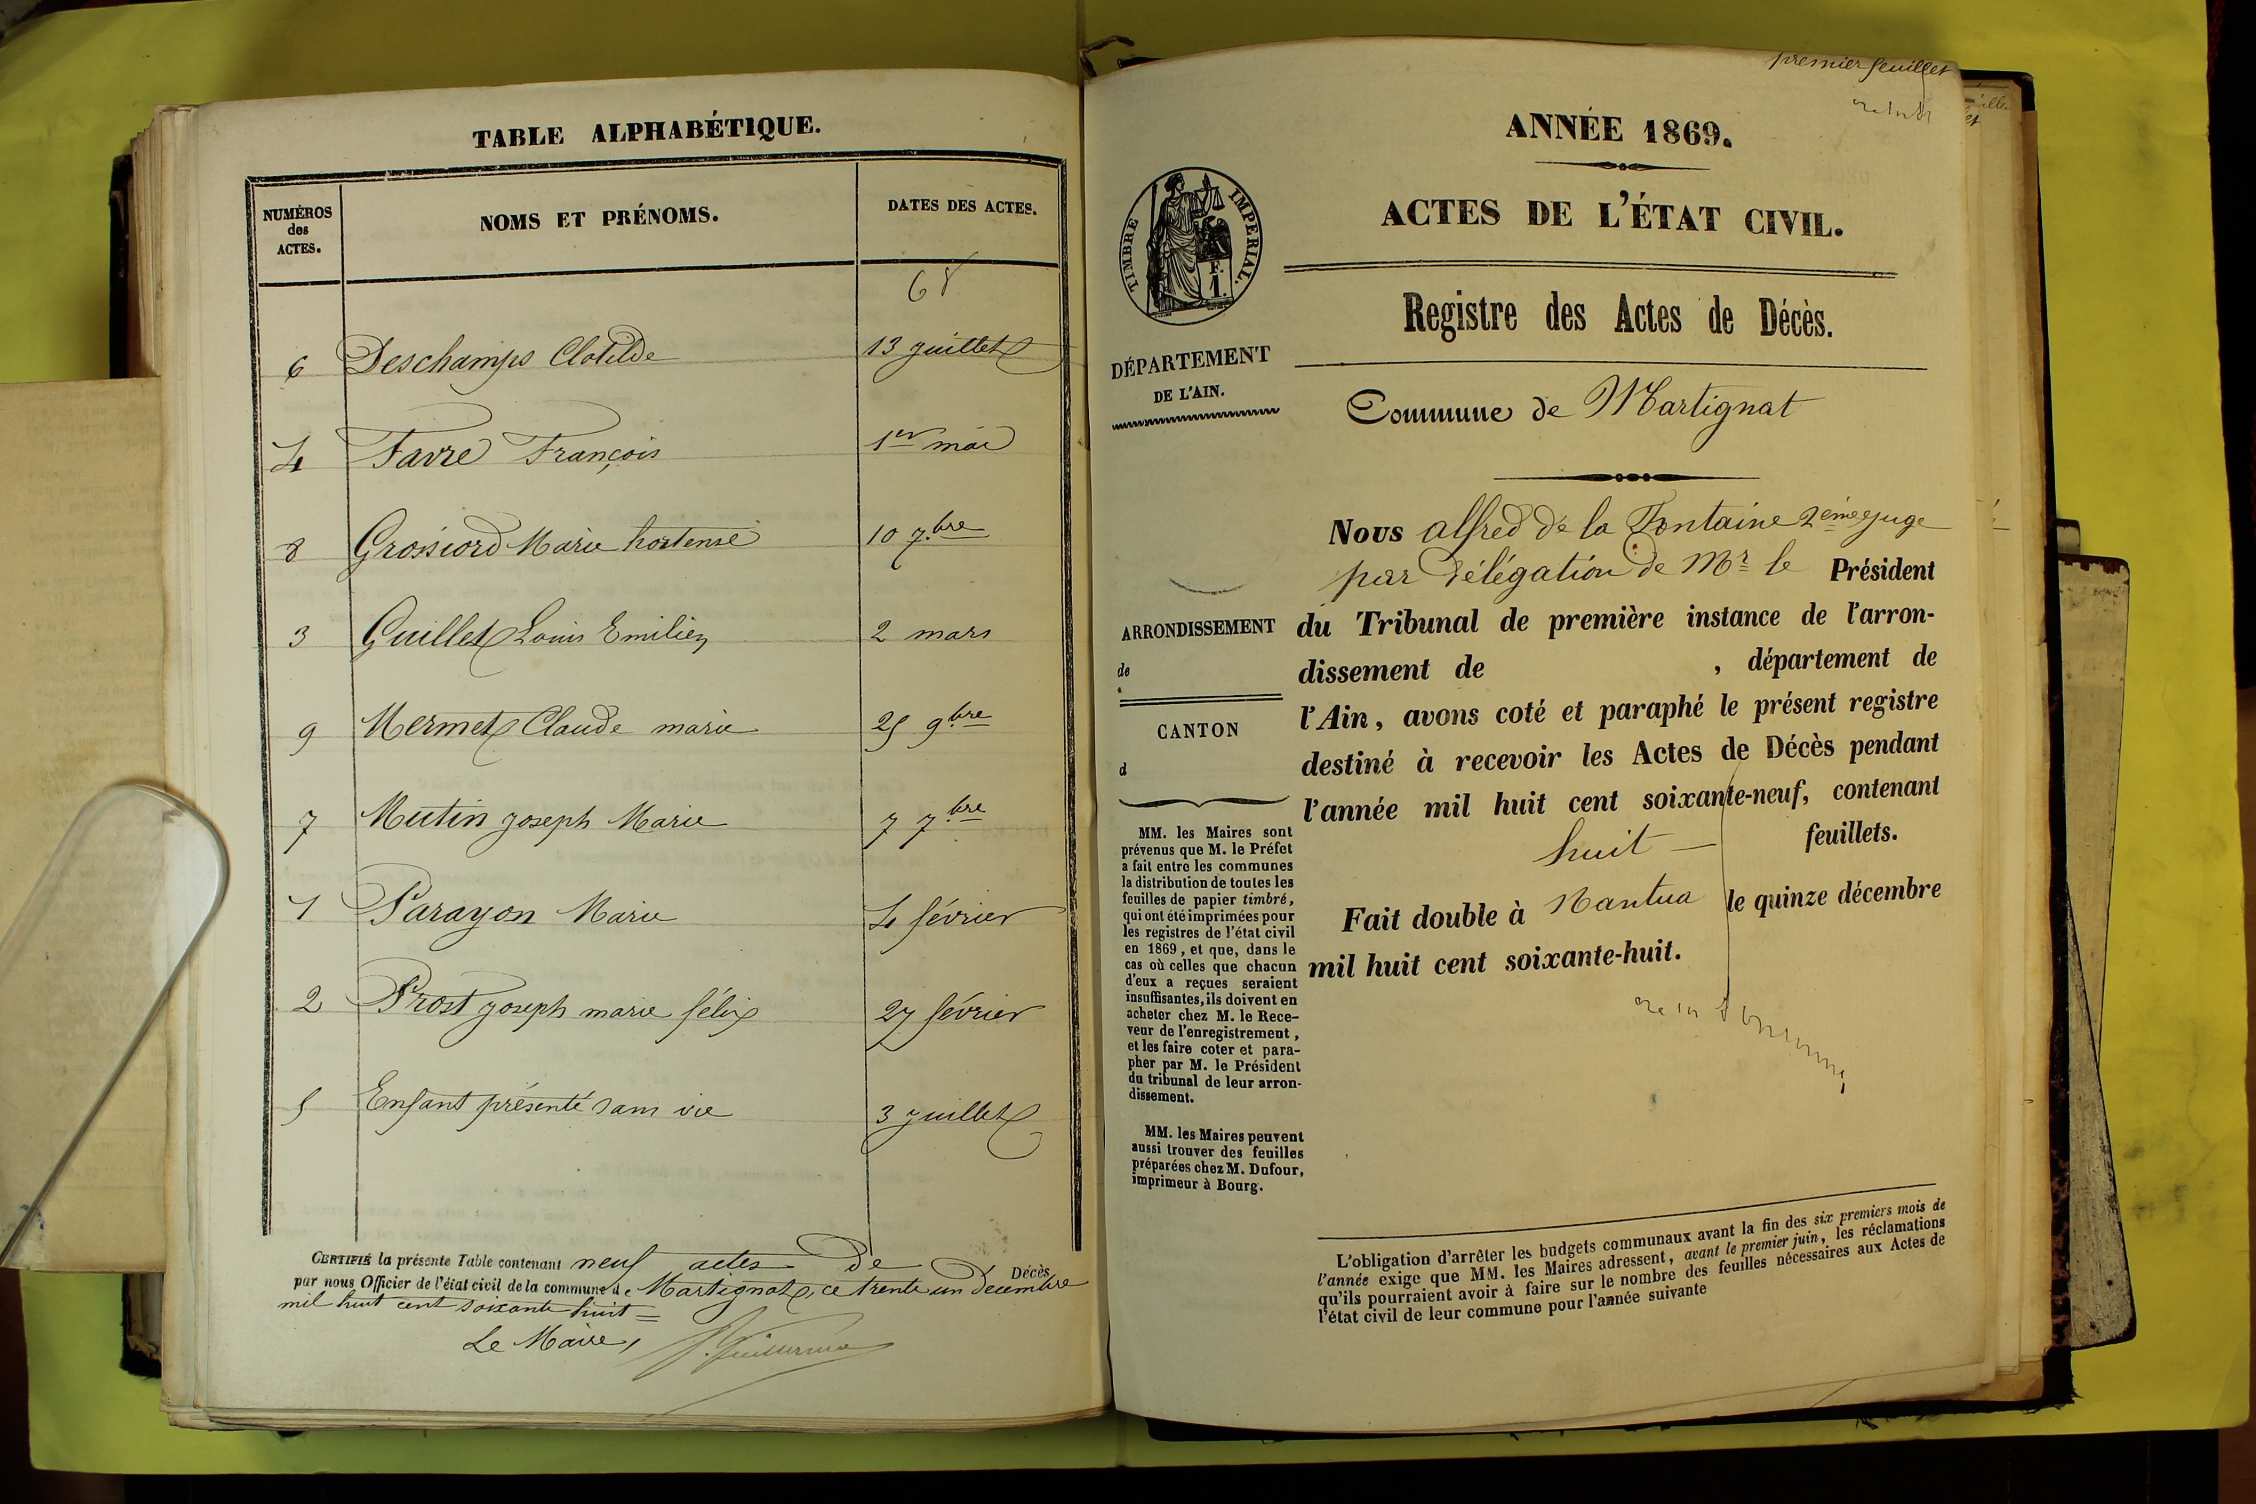 TABLE ALPHABÉTIQUE.
NUMÉROS
des
ACTES.
NOMS ET PRÉNOMS.
DATES DES ACTES.
68
6 Deschamps Clotilde 13 juillet
4 Favre François 1er mai
8 Grossiord Marie hortense 10 7.bre
3 Guillet Louis Emilien 2 mars
9 Mermet Claude marie 25 9bre
7 Mutin joseph Marie 7 7bre
1 Parayon Marie 4 février
2 Prost joseph marie félix 27 février
5 Enfant présenté sans vie 3 juillet
CERTIFIÉ la présente Table contenant neuf actes de Décès
par nous Officier de l'état civil de la commune de Martignat, ce trente un décembre
mil huit cent soixante huit =
Le Maire,
premier feuillet
ANNÉE 1869.
ACTES DE L'ÉTAT CIVIL.
TIMBRE IMPERIAL.
F.
1.
Registre des Actes de Décès.
DÉPARTEMENT
DE L'AIN.
Commune de Martignat
Nous alfred de la Fontaine 2ème juge
par délégation de Mr le Président
du Tribunal de première instance de l'arron-
dissement de , département de
l'Ain, avons coté et paraphé le présent registre
destiné à recevoir les Actes de Décès pendant
l'année mil huit cent soixante-neuf, contenant
huit — feuillets.
Fait double à Nantua le quinze décembre
mil huit cent soixante-huit.
ARRONDISSEMENT
de
CANTON
d
MM. les Maires sont
prévenus que M. le Préfet
a fait entre les communes
la distribution de toutes les
feuilles de papier timbré,
qui ont été imprimées pour
les registres de l'état civil
en 1869, et que, dans le
cas où celles que chacun
d'eux a reçues seraient
insuffisantes, ils doivent en
acheter chez M. le Rece-
veur de l'enregistrement,
et les faire coter et para-
pher par M. le Président
du tribunal de leur arron-
dissement.
MM. les Maires peuvent
aussi trouver des feuilles
préparées chez M. Dufour,
imprimeur à Bourg.
L'obligation d'arrêter les budgets communaux avant la fin des six premiers mois de
l'année exige que MM. les Maires adressent, avant le premier juin, les réclamations
qu'ils pourraient avoir à faire sur le nombre des feuilles nécessaires aux Actes de
l'état civil de leur commune pour l'année suivante